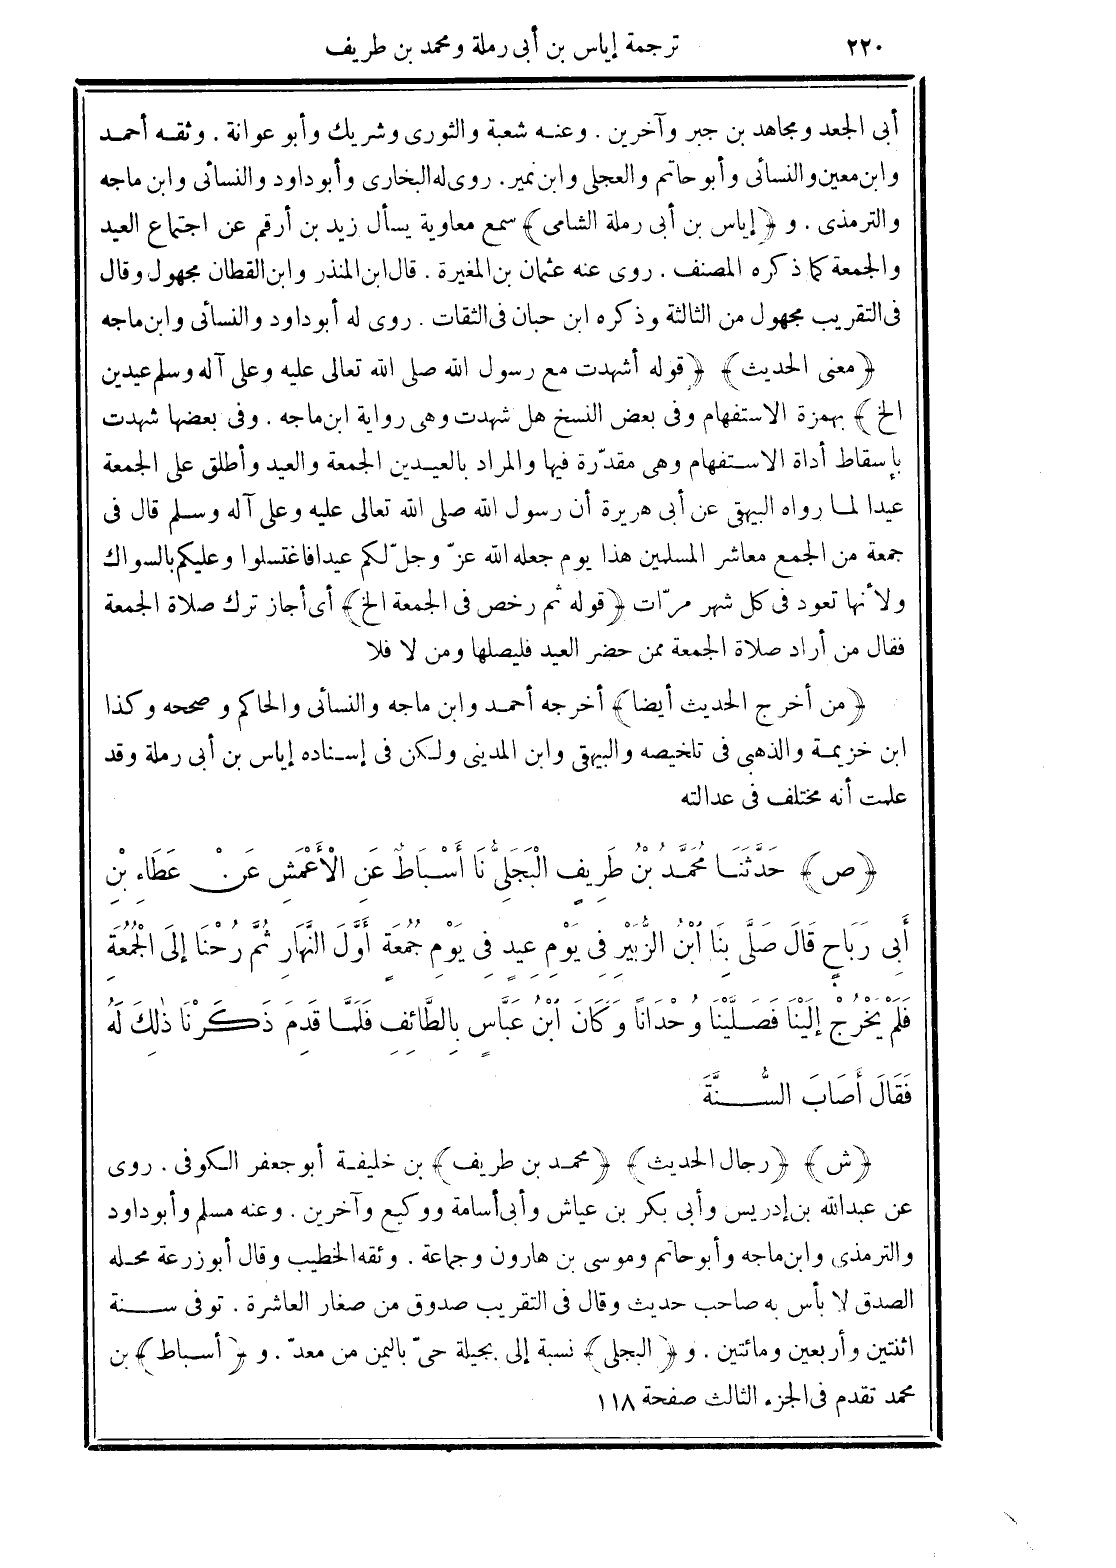 ٢٢٠ ترجمة إياس بن أبى رملة ومحمد بن طريف
أبى الجعد ومجاهد بن جبر وآخرين . وعنه شعبة والثورى وشريك وأبو عوانة . وثقه أحمد
وابن معين والنسائى وأبو حاتم والعجلى وابن نمير . روى له البخارى وأبو داود والنسائى وابن ماجه
والترمذى . و ﴿إياس بن أبى رملة الشامى﴾ سمع معاوية يسأل زيد بن أرقم عن اجتماع العيد
والجمعة كما ذكره المصنف . روى عنه عثمان بن المغيرة . قال ابن المنذر وابن القطان مجهول وقال
فى التقريب مجهول من الثالثة وذكره ابن حبان فى الثقات . روى له أبو داود والنسائى وابن ماجه
﴿معنى الحديث﴾ ﴿قوله أشهدت مع رسول الله صلى الله تعالى عليه وعلى آله وسلم عيدين
الخ﴾ بهمزة الاستفهام وفى بعض النسخ هل شهدت وهى رواية ابن ماجه . وفى بعضها شهدت
بإسقاط أداة الاستفهام وهى مقدّرة فيها والمراد بالعيدين الجمعة والعيد وأطلق على الجمعة
عيدا لما رواه البيهقى عن أبى هريرة أن رسول الله صلى الله تعالى عليه وعلى آله وسلم قال فى
جمعة من الجمع معاشر المسلمين هذا يوم جعله الله عزّ وجلّ لكم عيدا فاغتسلوا وعليكم بالسواك
ولأنها تعود فى كل شهر مرّات ﴿قوله ثم رخص فى الجمعة الخ﴾ أى أجاز ترك صلاة الجمعة
فقال من أراد صلاة الجمعة ممن حضر العيد فليصلها ومن لا فلا
﴿من أخرج الحديث أيضا﴾ أخرجه أحمد وابن ماجه والنسائى والحاكم وصححه وكذا
ابن خزيمة والذهبى فى تلخيصه والبيهقى وابن المدينى ولكن فى إسناده إياس بن أبى رملة وقد
علمت أنه مختلف فى عدالته
﴿ص﴾ حَدَّثَنَا مُحَمَّدُ بْنُ طَرِيفٍ الْبَجَلِىُّ نَا أَسْبَاطٌ عَنِ الْأَعْمَشِ عَنْ عَطَاءِ بْنِ
أَبِى رَبَاحٍ قَالَ صَلَّى بِنَا ابْنُ الزُّبَيْرِ فِى يَوْمِ عِيدٍ فِى يَوْمِ جُمُعَةٍ أَوَّلَ النَّهَارِ ثُمَّ رُحْنَا إِلَى الْجُمُعَةِ
فَلَمْ يَخْرُجْ إِلَيْنَا فَصَلَّيْنَا وُحْدَانًا وَكَانَ ابْنُ عَبَّاسٍ بِالطَّائِفِ فَلَمَّا قَدِمَ ذَكَرْنَا ذٰلِكَ لَهُ
فَقَالَ أَصَابَ السُّنَّةَ
﴿ش﴾ ﴿رجال الحديث﴾ ﴿محمد بن طريف﴾ بن خليفة أبو جعفر الكوفى . روى
عن عبد الله بن إدريس وأبى بكر بن عياش وأبى أسامة ووكيع وآخرين . وعنه مسلم وأبو داود
والترمذى وابن ماجه وأبو حاتم وموسى بن هارون وجماعة . وثقه الخطيب وقال أبو زرعة محله
الصدق لا بأس به صاحب حديث وقال فى التقريب صدوق من صغار العاشرة . توفى سنة
اثنتين وأربعين ومائتين . و ﴿البجلى﴾ نسبة إلى بجيلة حىّ باليمن من معدّ . و ﴿أسباط﴾ بن
محمد تقدم فى الجزء الثالث صفحة ١١٨